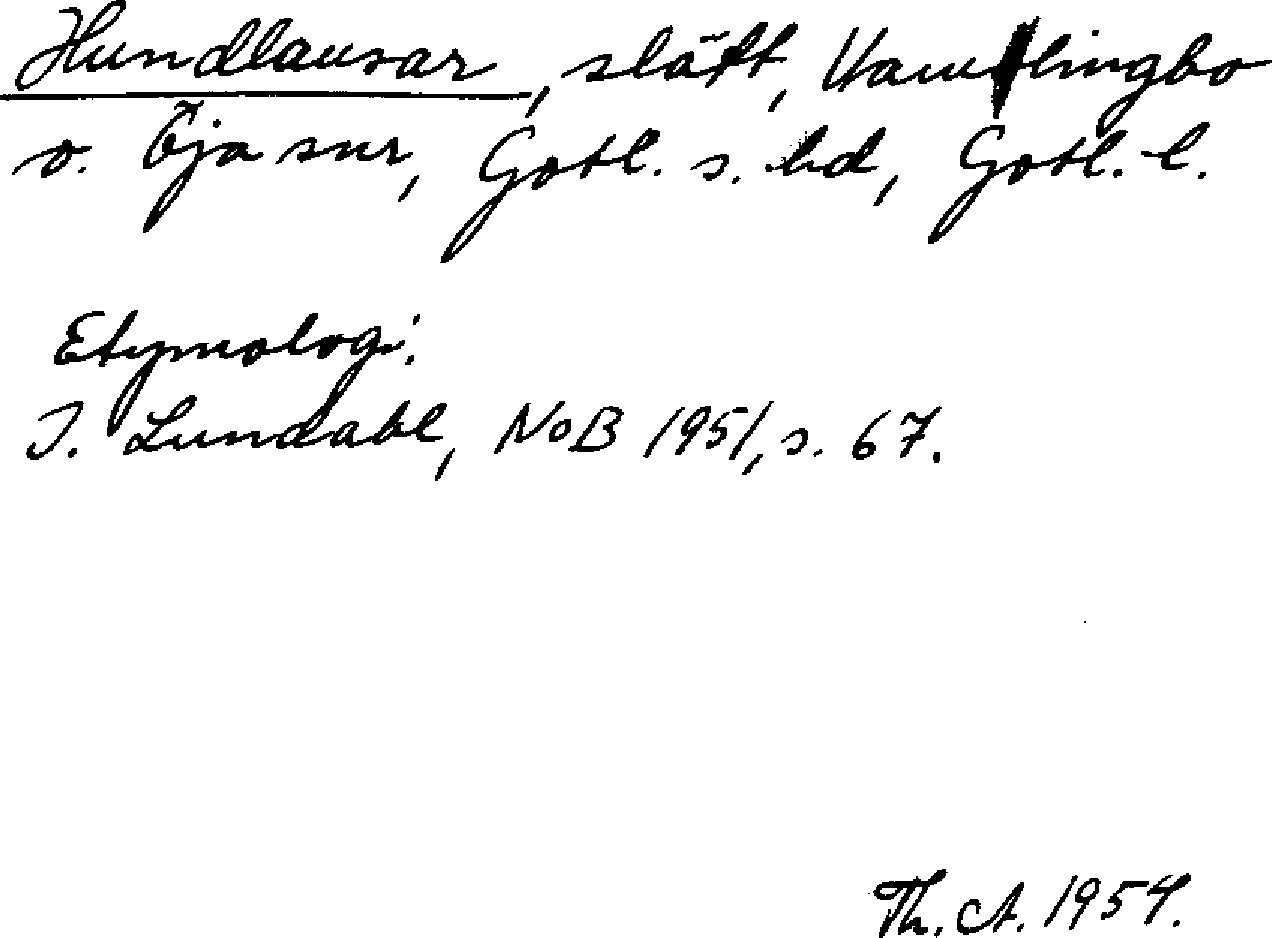 Hundlausar, slätt, Vamlingbo
o. Öja snr, Gotl. s. hd, Gotl. l.
Etymologi.
I. Lundahl, NoB 1951, s. 67.
Th. A. 1954.